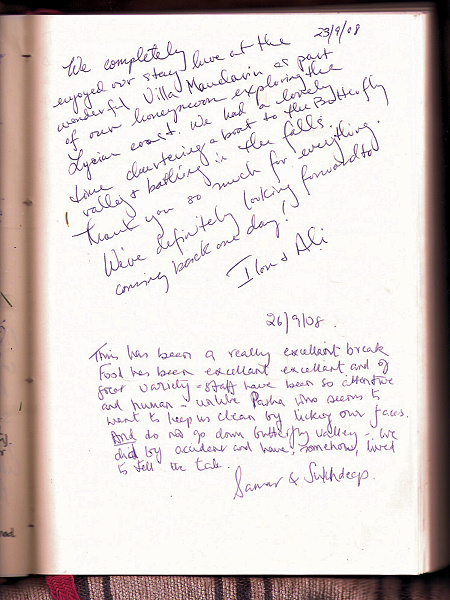 23/9/08
We completely
enjoyed our stay here at the
wonderful Villa Mandarin as part
of our honeymoon exploring the
Lycian coast. We had a lovely
time chartering a boat to the Butterfly
valley & bathing in the falls.
Thank you so much for everything.
We're definitely looking forward to
coming back one day!
& Ali
26/9/08.
This has been a really excellent break
Food has been excellent excellent and of
great variety - staff have been so attentive
and human - unlike Pasha who seems to
want to keep us clean by licking our faces.
And do not go down butterfly valley - we
did by accident and have, somehow, lived
to tell the tale.
& Sukhdeep.